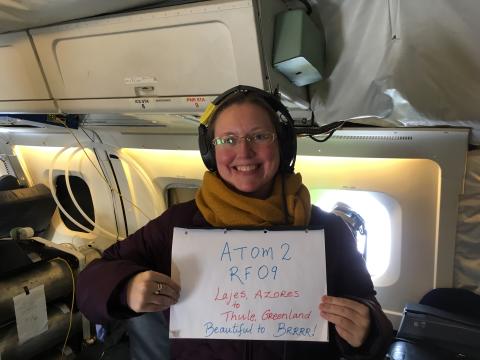 ATOM 2
RF09
LAJES, AZORES
to
THULE, GREENLAND
BEAUTIFUL TO BRRRR!